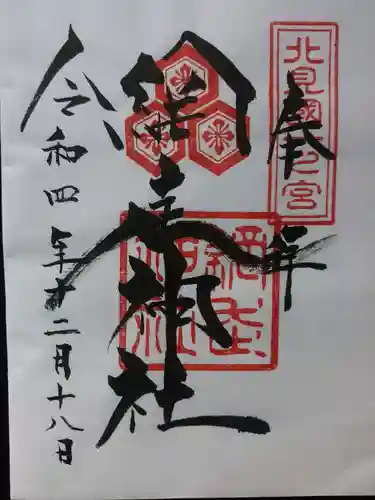 奉拝
北見國一の宮
網走神社
網走神社
令和四年十二月十八日